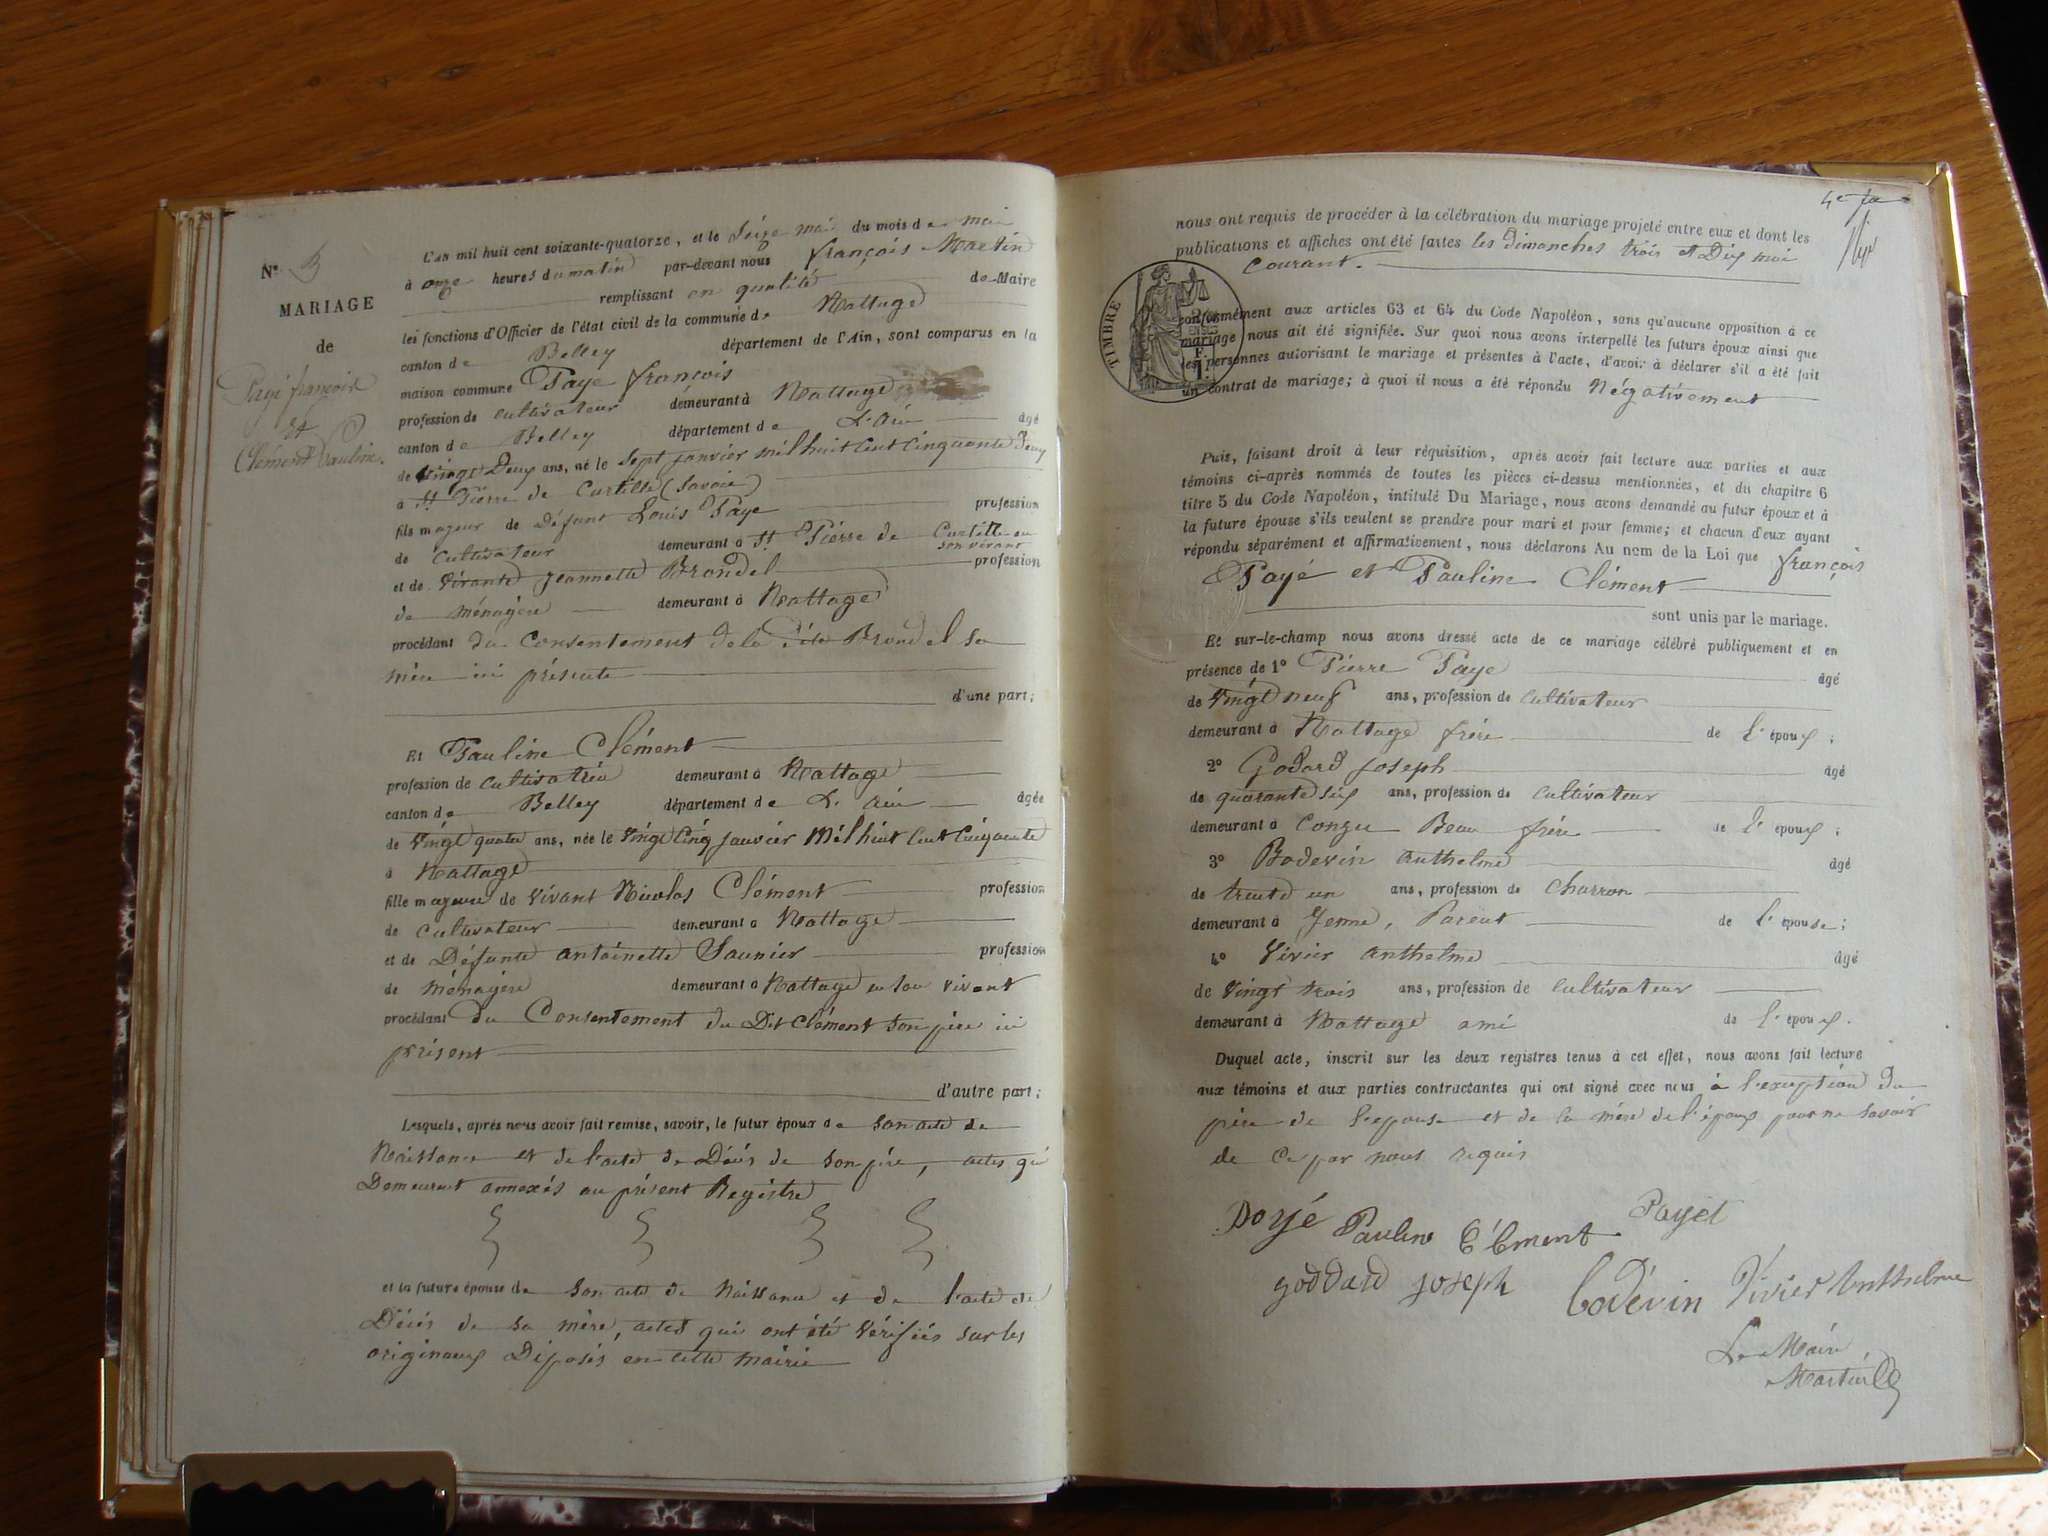 N° 3
MARIAGE
de
Payé françois
et
Clément Pauline.
L'an mil huit cent soixante-quatorze, et le Seize mai du mois de mai
à onze heures du matin par-devant nous françois Martin
remplissant en qualité de Maire
les fonctions d'Officier de l'état civil de la commune de Nattage
canton de Belley département de l'Ain, sont comparus en la
maison commune Paye françois
profession de cultivateur demeurant à Nattage
canton de Belley département de L'Ain âgé
de vingt Deux ans, né le sept janvier mil huit cent cinquante Deux
à St Pierre de Curtille (Savoie)
fils majeur de Défunt Louis Paye profession
de Cultivateur demeurant à St Pierre de Curtille en son vivant
et de vivante Jeannette Brondel profession
de ménagère demeurant à Nattage
procédant du Consentement de la Dite Brondel sa
mère ici présente
d'une part;
Et Pauline Clément
profession de cultivatrice demeurant à Nattage
canton de Belley département de L'Ain âgée
de Vingt quatre ans, née le Vingt Cinq janvier Mil huit Cent Cinquante
à Nattage
fille majeure de Vivant Nicolas Clément profession
de Cultivateur demeurant à Nattage
et de Défunte Antoinette Saunier profession
de Ménagère demeurant à Nattage en son vivant
procédant du Consentement du Dit Clément son père ici
présent
d'autre part;
Lesquels, après nous avoir fait remise, savoir, le futur époux de son acte de
Naissance et de l'acte de Décès de son père, actes qui
Demeurent annexés au présent Registre
et la future épouse de son acte de Naissance et de l'acte de
Décès de sa mère, actes qui ont été vérifiés sur les
originaux Déposés en cette mairie
nous ont requis de procéder à la célébration du mariage projeté entre eux et dont les
publications et affiches ont été faites les dimanches trois et Dix mai
Courant.
TIMBRE
conformément aux articles 63 et 64 du Code Napoléon, sans qu'aucune opposition à ce
mariage nous ait été signifiée. Sur quoi nous avons interpellé les futurs époux ainsi que
les personnes autorisant le mariage et présentes à l'acte, d'avoir à déclarer s'il a été fait
un contrat de mariage; à quoi il nous a été répondu Négativement
Puis, faisant droit à leur réquisition, après avoir fait lecture aux parties et aux
témoins ci-après nommés de toutes les pièces ci-dessus mentionnées, et du chapitre 6
titre 5 du Code Napoléon, intitulé Du Mariage, nous avons demandé au futur époux et à
la future épouse s'ils veulent se prendre pour mari et pour femme; et chacun d'eux ayant
répondu séparément et affirmativement, nous déclarons Au nom de la Loi que françois
Payé et Pauline Clément
sont unis par le mariage.
Et sur-le-champ nous avons dressé acte de ce mariage célébré publiquement et en
présence de 1° Pierre Paye âgé
de Vingt neuf ans, profession de cultivateur
demeurant à Nattage frère de l'époux;
2° Godard Joseph âgé
de quarante six ans, profession de cultivateur
demeurant à Conzu Beau frère de l'époux;
3° Bodevin Anthelme âgé
de trente un ans, profession de Charron
demeurant à Yenne, Parent de l'épouse;
4° Vivier Anthelme âgé
de Vingt trois ans, profession de cultivateur
demeurant à Nattage ami de l'époux.
Duquel acte, inscrit sur les deux registres tenus à cet effet, nous avons fait lecture
aux témoins et aux parties contractantes qui ont signé avec nous à l'exception du
père de l'épouse et de la mère de l'époux pour ne savoir
de ce par nous requis
Payé Pauline Clément Payet
goddard joseph Bodevin Vivier Anthelme
Le Maire
Martin